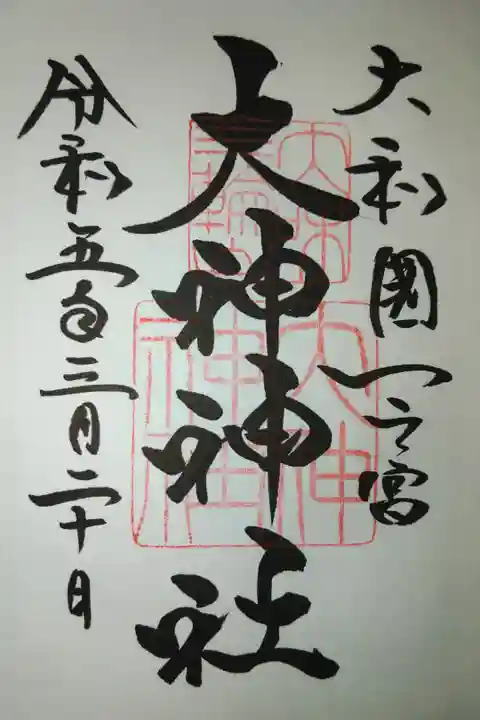 大和國一之宮
大神神社
令和五年三月二十日
三輪
大神
神社